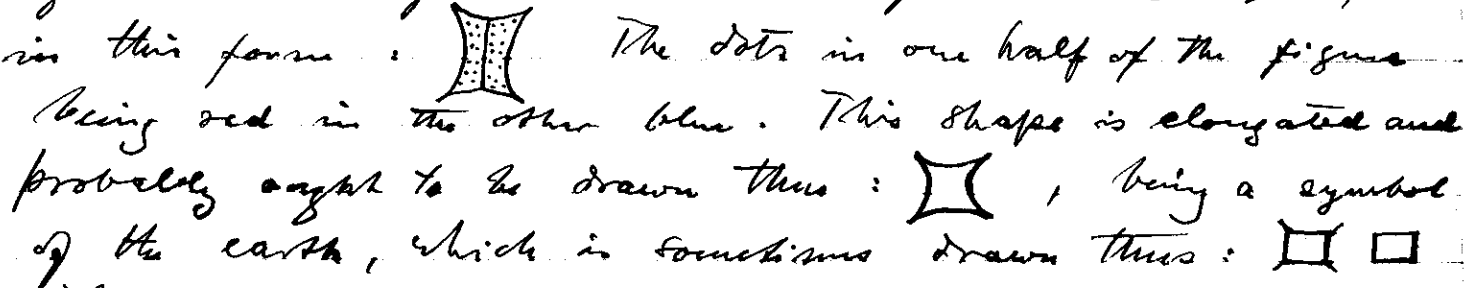 in this form :   The dots in one half of the figure
being red in the other blue. This shape is elongated and
probably ought to be drawn thus :   , being a symbol
of the earth, which is sometimes drawn thus :